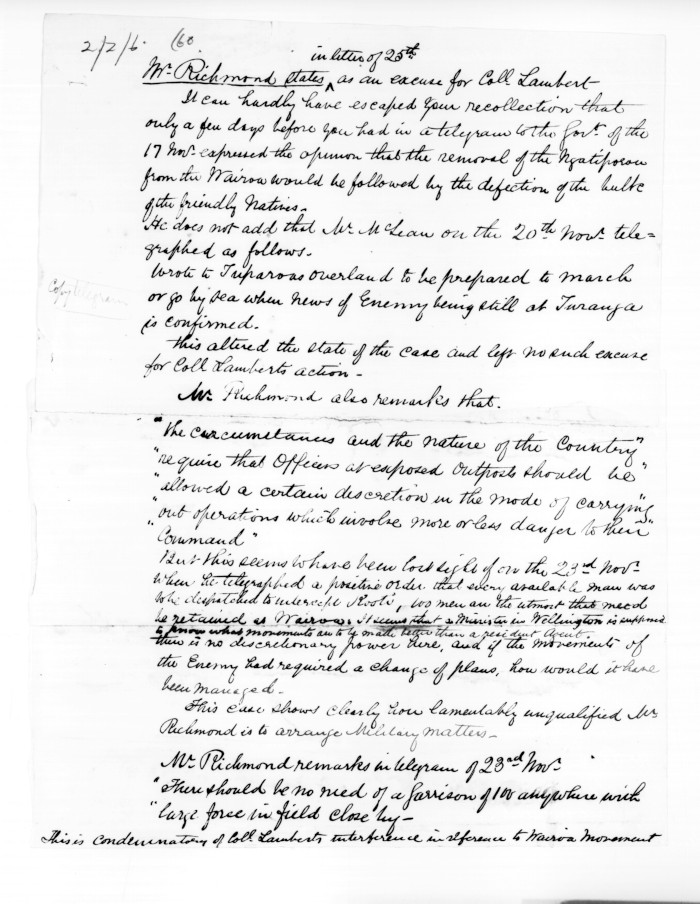 2/2/6. (60
in letter of 25th
Mr. Richmond states ^ as an excuse for Coll. Lambert
It can hardly have escaped your recollection that
only a few days before you had in a telegram to the Govt. of the
17 Novr. expressed the opinion that the removal of the Ngatiporou
from the Wairoa would be followed by the defection of the bulk
of the friendly Natives.
He does not add that Mr. McLean on the 20th Novr. tele=
graphed as follows.
Wrote to Tuparoa overland to be prepared to march
or go by sea when news of Enemy being still at Turanga
is confirmed.
Copy telegram
This altered the state of the case and left no such excuse
for Coll Lamberts action -
Mr. Richmond also remarks that.
"the circumstances and the nature of the Country"
"require that Officers at exposed Outposts should be"
"allowed a certain discretion in the mode of carrying"
"out operations which involve more or less danger to their"
Command"
But this seems to have been lost sight of on the 23rd Novr.
when he telegraphed a positive order that every available man was
to be despatched to intercept Kooti, 100 men are the utmost that need
be retained at Wairoa. It seems that a Minister in Wellington is supposed
to know what movements are to be made better than a resident Agent.
there is no discretionary power here, and if the movements of
the Enemy had required a change of plans, how would it have
been managed -
This case shows clearly how lamentably unqualified Mr
Richmond is to arrange Military matters -
Mr. Richmond remarks in telegram of 23rd Novr.
"There should be no need of a garrison of 100 anywhere with
"large force in field close by -
This is condemnatory of Coll. Lamberts interference in reference to Wairoa Movement